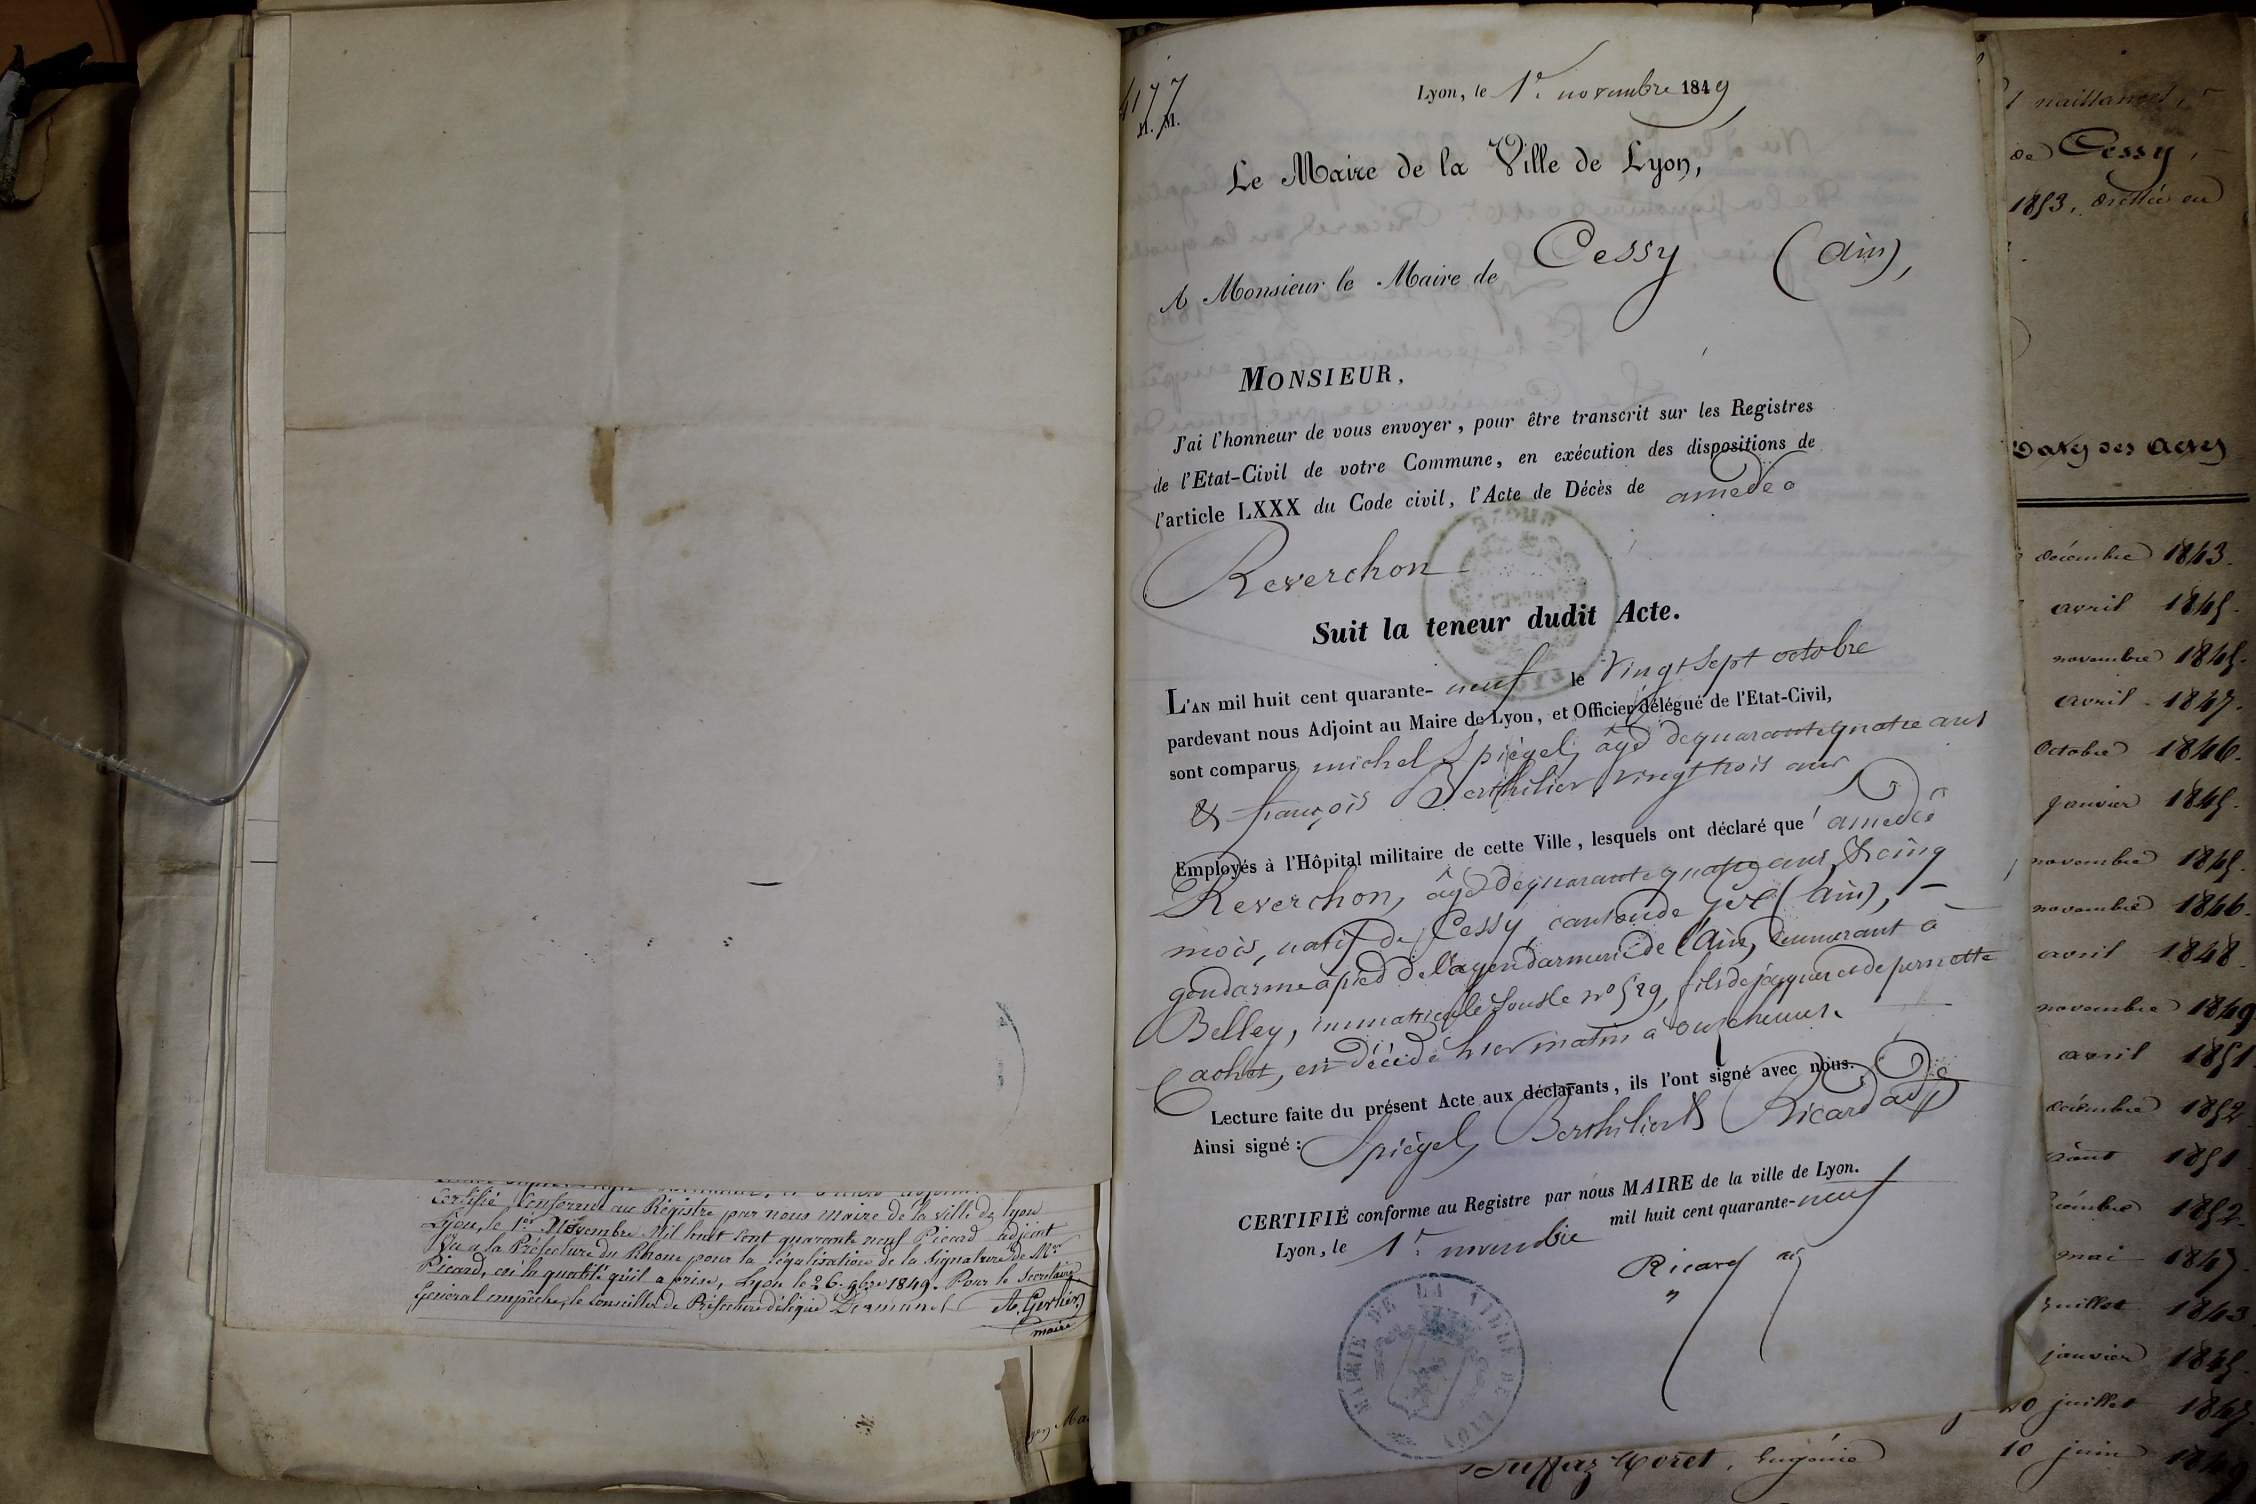 Certifié Conforme au Régistre par nous Maire de la ville de Lyon
Lyon, le 1er Novembre Mil huit cent quarante neuf Picard adjoint
Vu a la Préfecture du Rhone pour la légalisation de la Signature de Mr
Picard, en la qualité qu'il a prise, Lyon le 26. 9bre 1849. Pour le Secretaire
Général empêché, le Conseiller de Préfecture délégué
maire
4177
N. M.
Lyon, le 1er. novembre 1849
Le Maire de la Ville de Lyon,
A Monsieur le Maire de Cessy (ain),
MONSIEUR,
J'ai l'honneur de vous envoyer, pour être transcrit sur les Registres
de l'Etat-Civil de votre Commune, en exécution des dispositions de
l'article LXXX du Code civil, l'Acte de Décès de amédée
Reverchon
Suit la teneur dudit Acte.
L'AN mil huit cent quarante-neuf le vingt sept octobre
pardevant nous Adjoint au Maire de Lyon, et Officier délégué de l'Etat-Civil,
sont comparus michel Spiégel, âgé de quarante quatre ans
& françois Berthilier vingt trois ans
Employés à l'Hôpital militaire de cette Ville, lesquels ont déclaré que amédée
Reverchon, âgé de quarante quatre ans & cinq
mois, natif de Cessy, canton de Gex (ain),
gendarme à pied de la gendarmerie de l'Ain, demeurant à
Belley, immatriculé sous le no 529, fils de jacques et de pernette
Cachat, est décédé hier matin à onze heures.
Lecture faite du présent Acte aux déclarants, ils l'ont signé avec nous.
Ainsi signé: Spiégel, Berthilier & Ricard adj
CERTIFIÉ conforme au Registre par nous MAIRE de la ville de Lyon.
Lyon, le 1er. novembre mil huit cent quarante-neuf
Ricard adj
MAIRIE DE LA VILLE DE LYON
naissances,
de Cessy,
1853, dressée en
Dates des Actes
décembre 1843.
avril 1845.
novembre 1845.
avril 1847.
Octobre 1846.
janvier 1845.
novembre 1845.
novembre 1846.
avril 1848.
novembre 1849
avril 1851
décembre 1852
août 1851
décembre 1852.
mai 1847.
juillet 1843
janvier 1845.
10 juillet 1847.
10 juin 1849